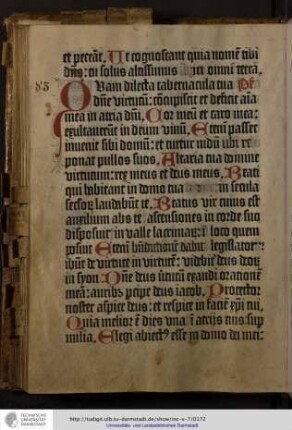 et pereāt, Ut cognoscant quia nomē tibi
dn̄s: tu solus altissimus in omni terra,
83
Quam dilecta tabernacula tua
dn̄e virtutū: cōcupiscit et deficit aīa
mea in atria dn̄i, Cor meū et caro mea:
exultauerūt in deum viuū, Etenī passer
inuenit sibi domū: et turtur nidū ubi re
ponat pullos suos, Altaria tua domine
virtutum: rex meus et deus meus, Beati
qui habitant in domo tua in secula
seculoꝝ laudabūt te, Beatus vir cuius est
auxilium abs te ascensiones in corde suo
disposuit in valle lacrimaꝝ: ī loco quem
posuit Etenī bn̄dictionē dabit legislator
ibūt de virtute in virtutē: videbit̄ deus deoꝝ
in syon Dn̄e deus v̄tutū exaudi orationē
mea: auribꝯ ꝑcipe deus iacob, Protector
noster aspice deus: et respice in faciē xp̄i tui,
Quia melior ē dies vna: ī atrijs tuis sup
milia, Elegi abiectꝯ esse in domo dei mei:
TECHNISCHE
UNIVERSITÄT
DARMSTADT
http://tudigit.ulb.tu-darmstadt.de/show/inc-v-7/0172
Universitäts- und Landesbibliothek Darmstadt